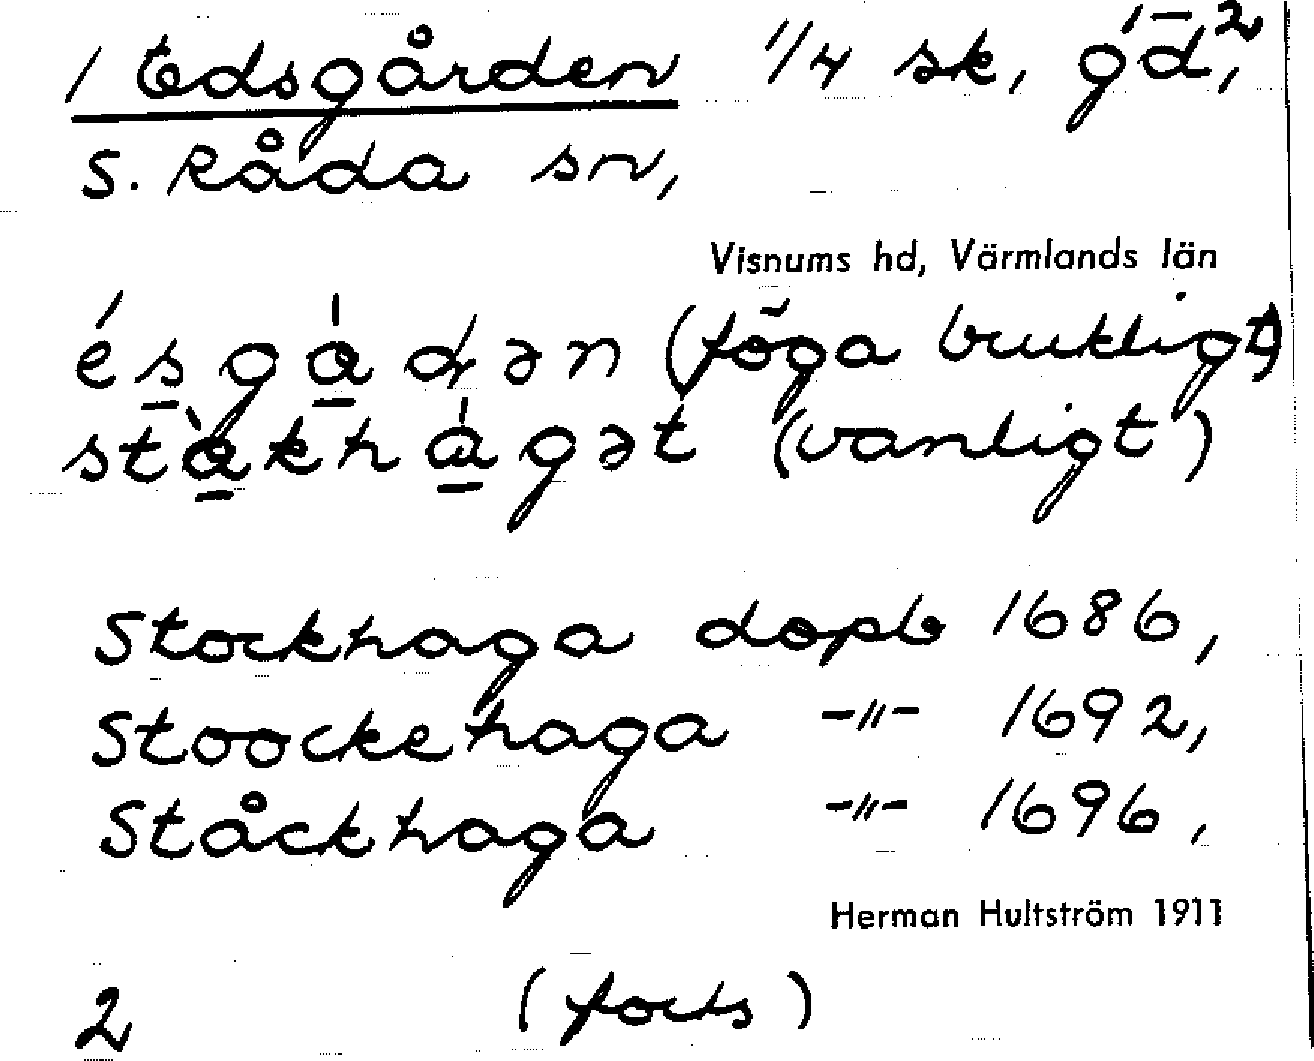 / Edsgården 1/4 sk, gd²,
S. Råda sn,
Visnums hd, Värmlands län
ésgɑ̀dən (föga brukligt)
stɑ̀khɑ̀gət (vanligt)
Stockhaga dopb 1686,
Stoockehaga -〃- 1692,
Ståckhaga -〃- 1696,
Herman Hultström 1911
2 (forts)